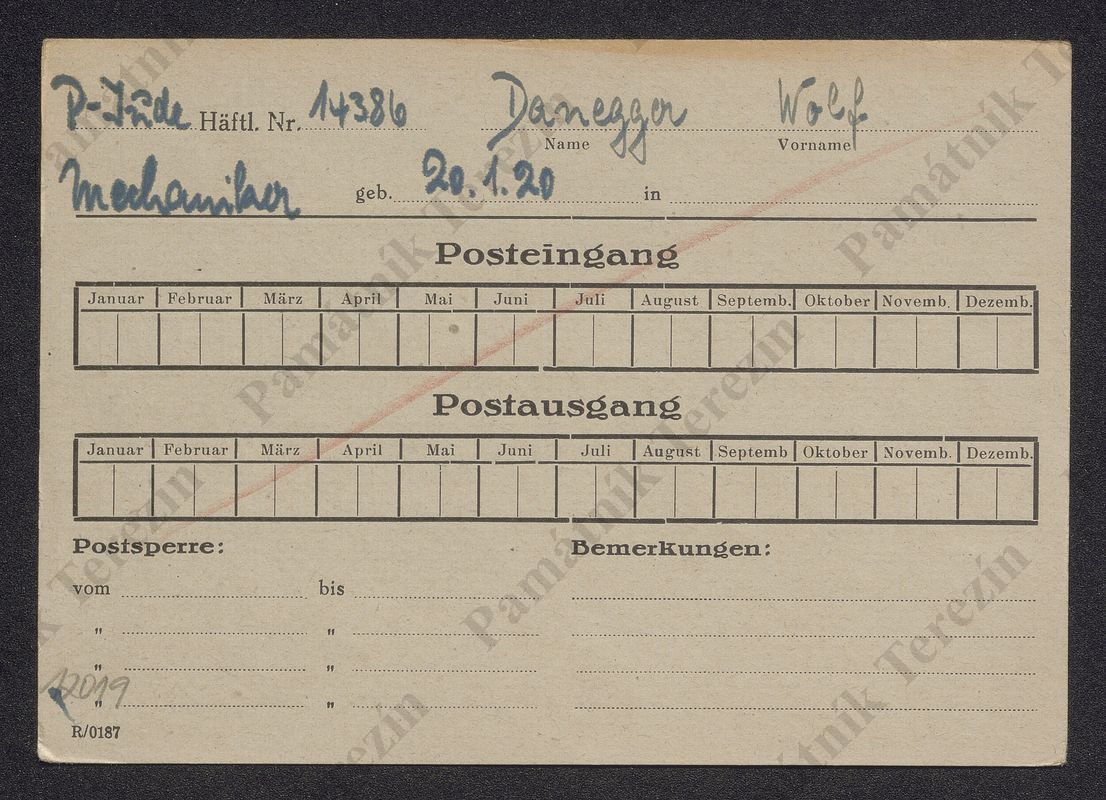 P-Jude Häftl. Nr. 14386 Danegger Wolf
Name Vorname
Mechaniker geb. 20.1.20 in
Posteingang
Januar Februar März April Mai Juni Juli August Septemb. Oktober Novemb. Dezemb.
Postausgang
Januar Februar März April Mai Juni Juli August Septemb Oktober Novemb. Dezemb.
Postsperre: Bemerkungen:
vom bis
" "
" "
12019
" "
R/0187
Památník Terezín